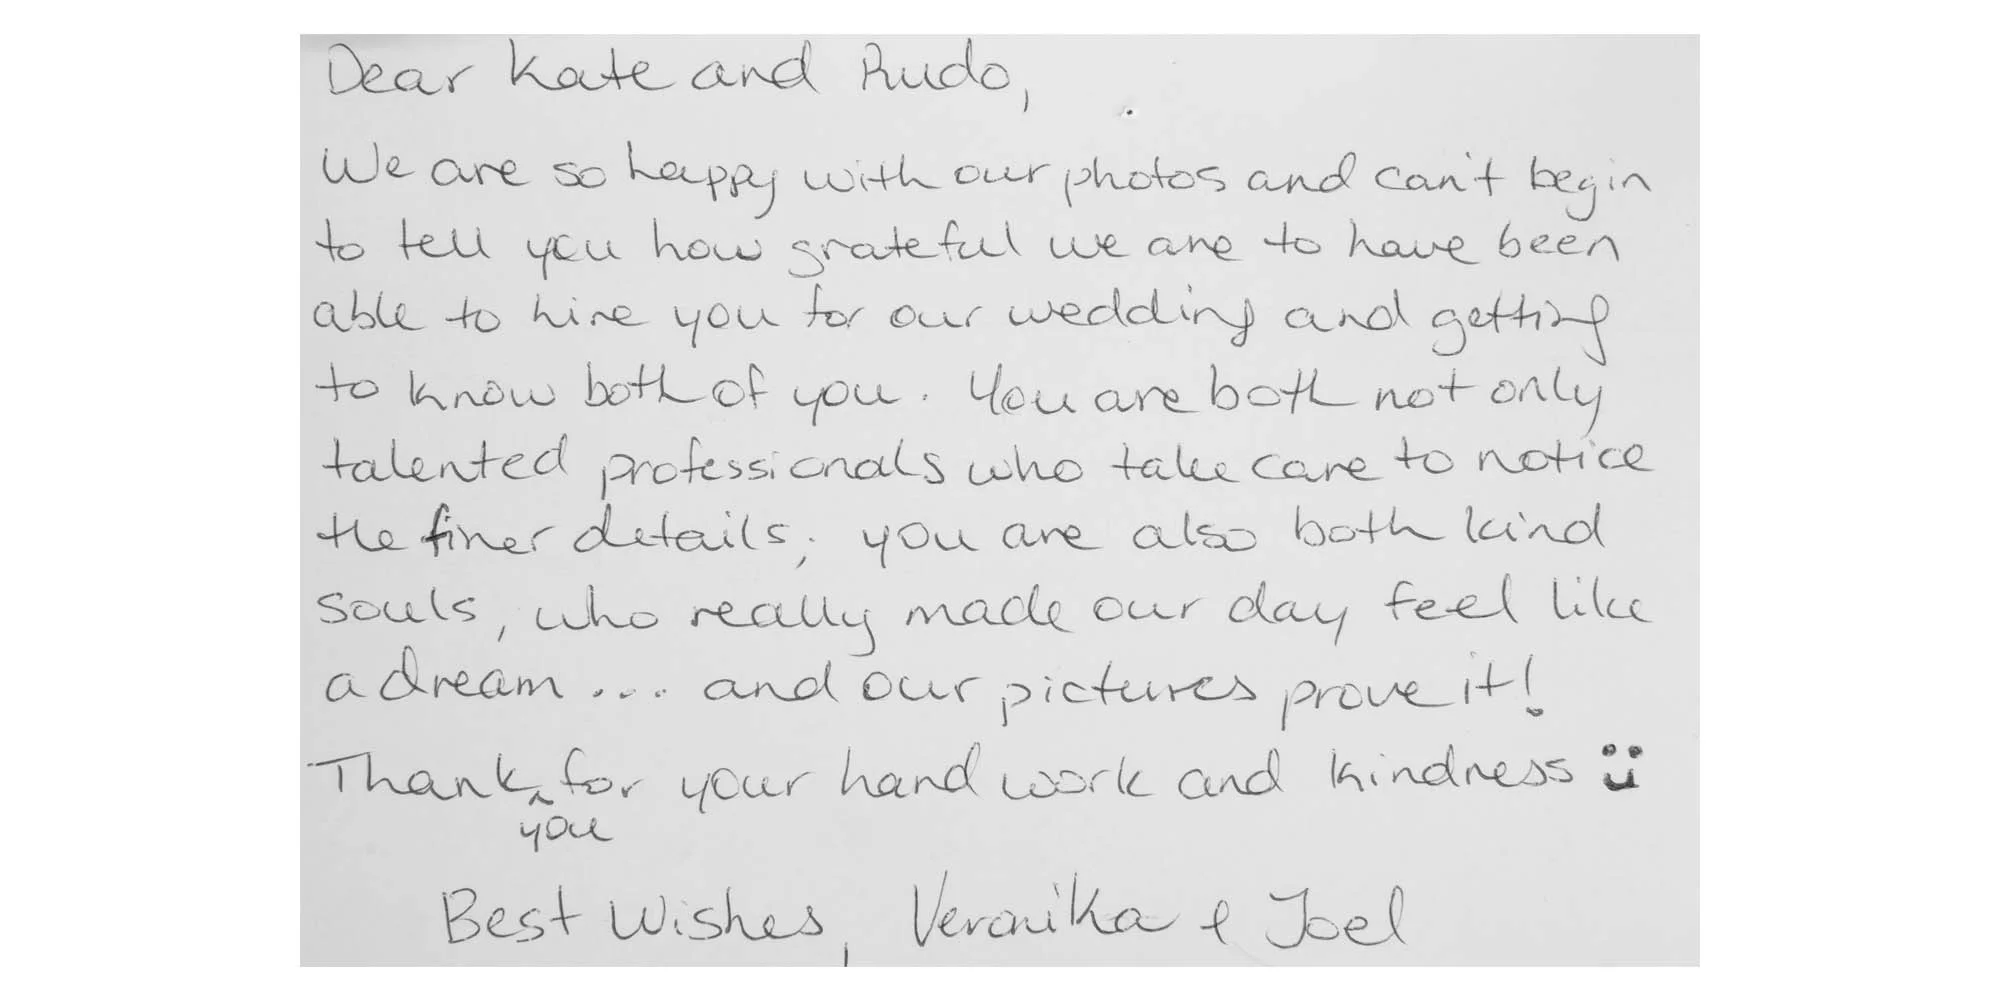 Dear Kate and Rudo,
We are so happy with our photos and can't begin
to tell you how grateful we are to have been
able to hire you for our wedding and getting
to know both of you. You are both not only
talented professionals who take care to notice
the finer details; you are also both kind
souls, who really made our day feel like
a dream... and our pictures prove it!
Thank ^ for your hard work and kindness ü
you
Best Wishes, Veronika & Joel